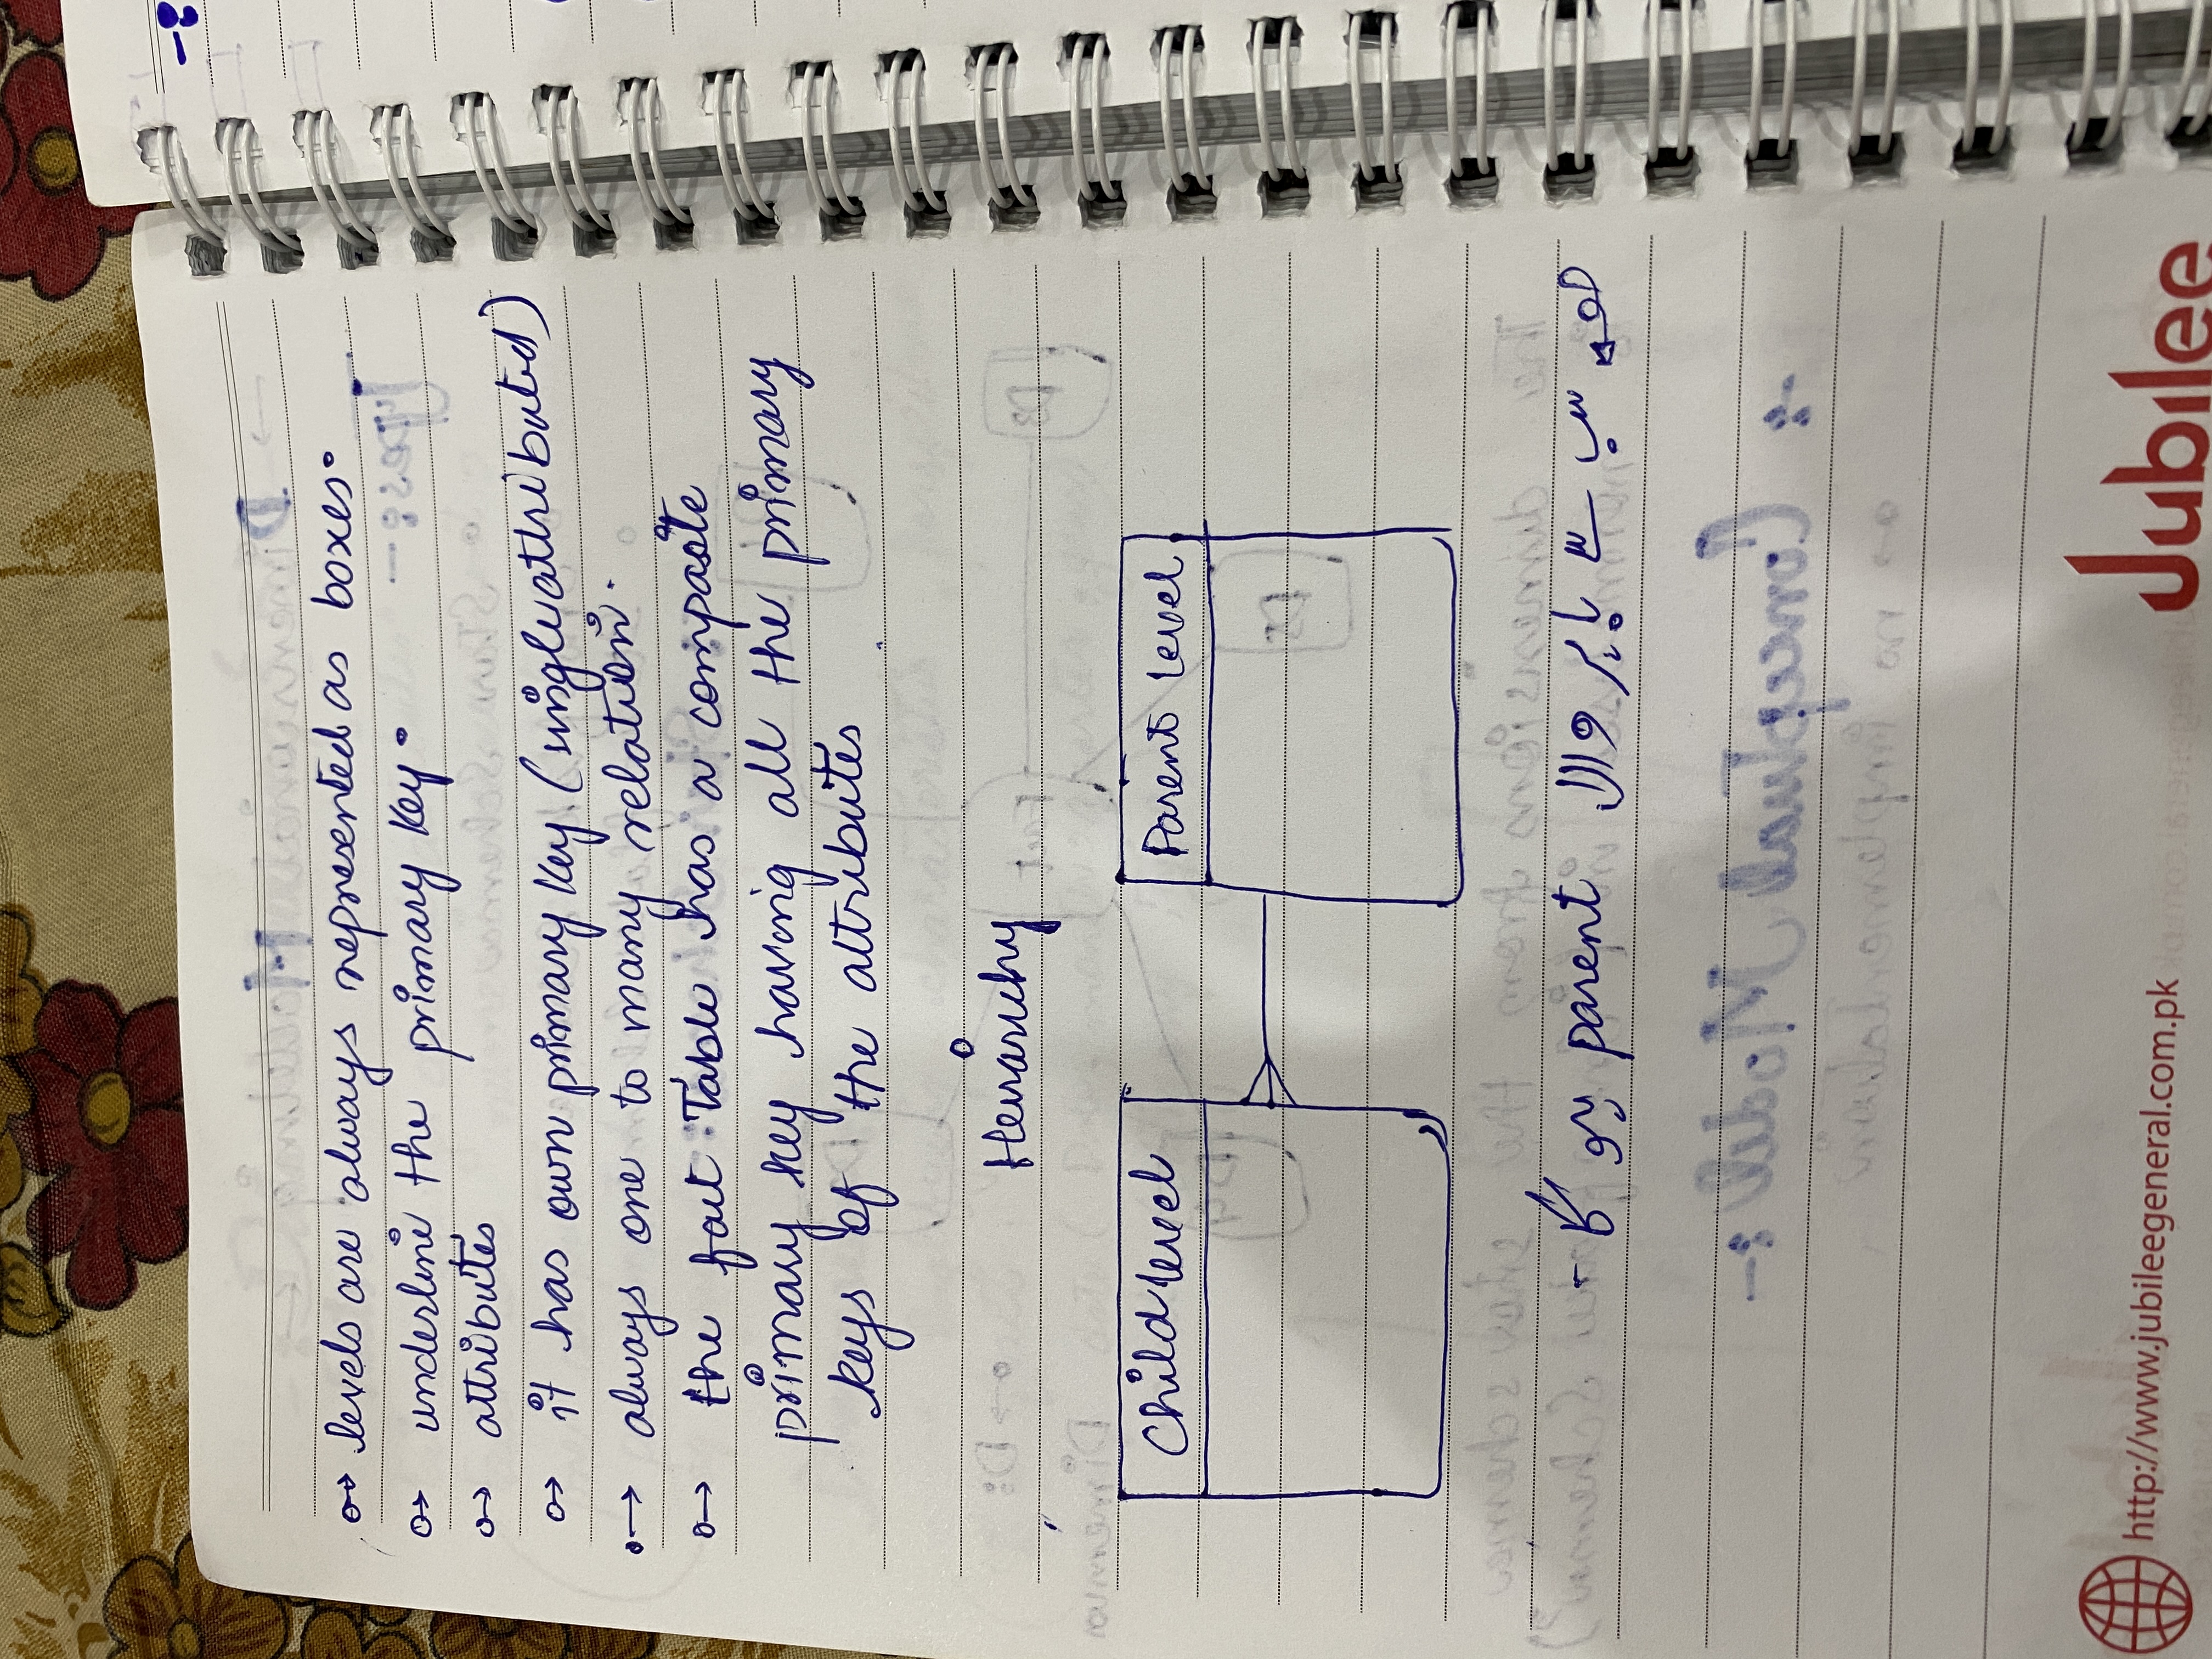 levels are always represented as boxes.
underline the primary key.
attributes
it has own primary key. (single attributed)
always one to many relation.
the fact Table has a compaste
primary key having all the primary
keys of the attributes
Heirarchy
Child level
Parent Level
سب سے باہر والا parent ہو گا -
http://www.jubileegeneral.com.pk
Jubilee